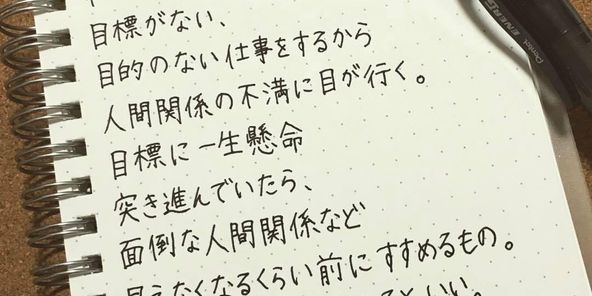 目標がない、
目的のない仕事をするから
人間関係の不満に目が行く。
目標に一生懸命
突き進んでいたら、
面倒な人間関係など
見えなくなるくらい前にすすめるもの。
といい。
Pentel ENER